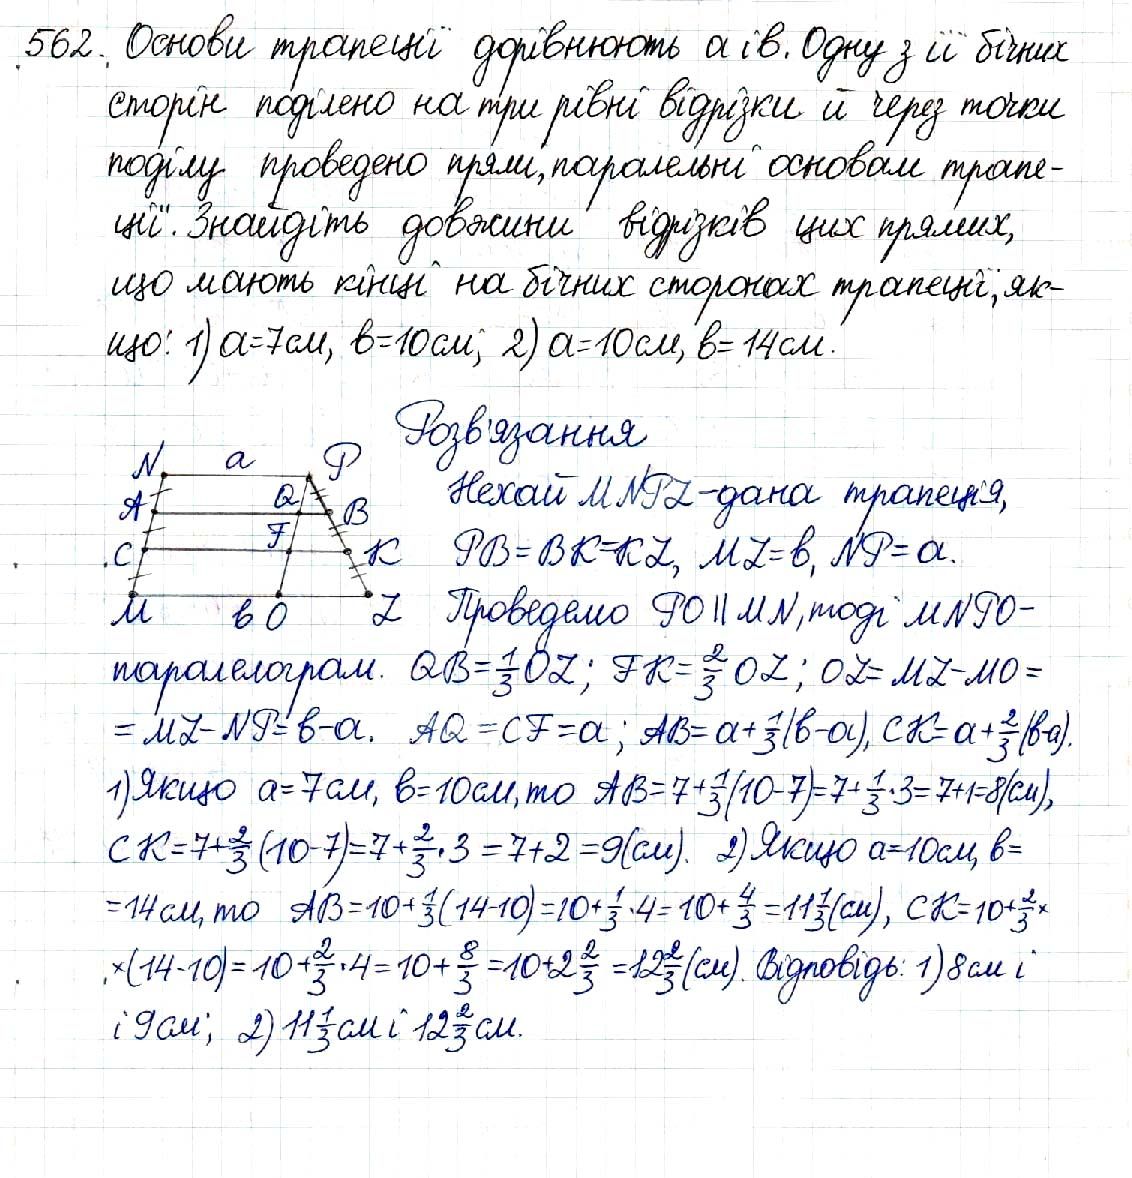 562. Основи трапеції дорівнюють a і b. Одну з її бічних
сторін поділено на три рівні відрізки й через точки
поділу проведено прямі, паралельні основам трапе-
ції. Знайдіть довжини відрізків цих прямих,
що мають кінці на бічних сторонах трапеції, як-
що: 1) a=7см, b=10см; 2) a=10см, b=14см.
Розв'язання
N a P
A Q B
F
C K
M b O Z
Нехай MNPZ-дана трапеція,
PB=BK=KZ, MZ=b, NP=a.
Проведемо PO||MN, тоді MNPO-
паралелограм. QB=1/3 OZ; FK=2/3 OZ; OZ=MZ-MO=
=MZ-NP=b-a. AQ=CF=a; AB=a+1/3(b-a), CK=a+2/3(b-a).
1) Якщо a=7см, b=10см, то AB=7+1/3(10-7)=7+1/3·3=7+1=8(см),
CK=7+2/3(10-7)=7+2/3·3=7+2=9(см). 2) Якщо a=10см, b=
=14см, то AB=10+1/3(14-10)=10+1/3·4=10+4/3=11 1/3(см), CK=10+2/3×
×(14-10)=10+2/3·4=10+8/3=10+2 2/3=12 2/3(см). Відповідь: 1) 8см і
і 9см; 2) 11 1/3 см і 12 2/3 см.